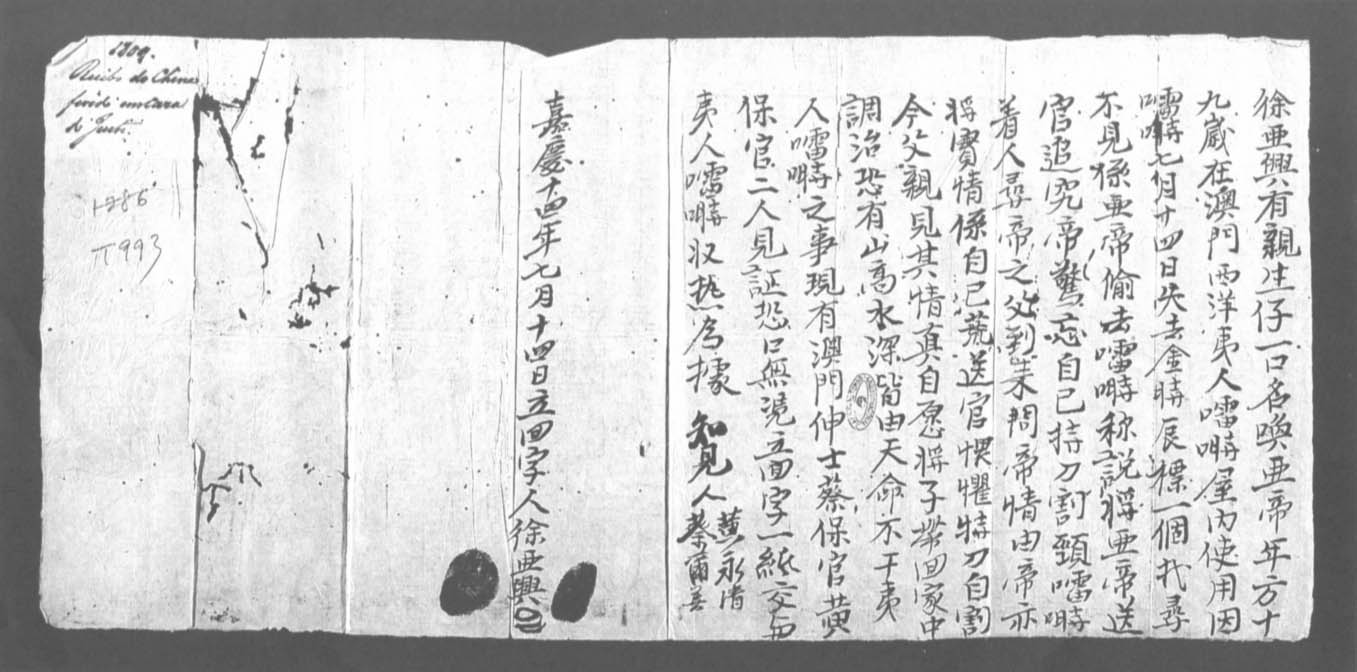 徐亜興有親生仔一口名喚亜帝年方十
九歲在澳門西洋夷人㘔𠺘屋内使用因
㘔𠺘七月十四日失去金時辰標一個找尋
不見係亜帝偷去㘔𠺘称説將亜帝送
官追究帝驚忙自已持刀割頸㘔𠺘
着人尋帝之父到来問帝情由帝亦
將實情係自已慌送官惧懼持刀自割
今父親見其情真自愿將子帶回家中
調治恐有山高水深皆由天命不干夷
人㘔𠺘之事現有澳門伸士蔡保官黄
保官二人見証恐口無凴立回字一紙交与
夷人㘔𠺘収扺為據 知見人
黄永清
蔡爾善
嘉慶十四年七月十四日立回字人徐亜興
1809.
Recibo do China
ferido em Cara
de
1286
T993